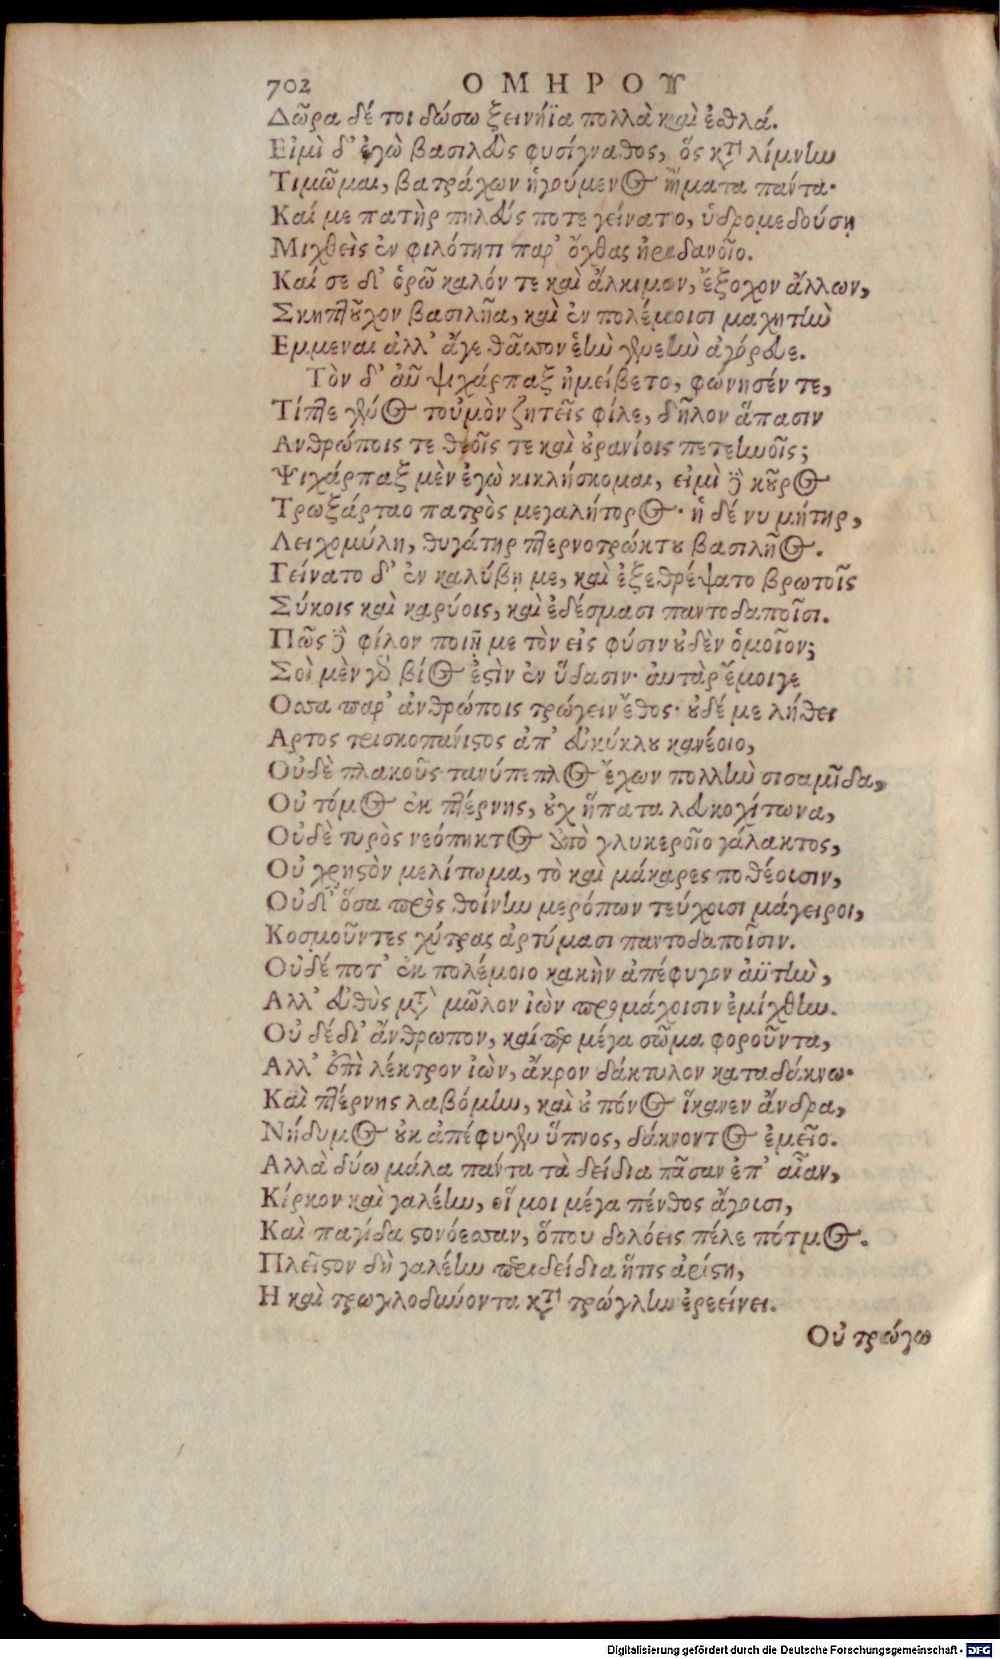 702 ΟΜΗΡΟΥ
Δῶρα δέ τοι δώσω ξεινήϊα πολλὰ καὶ ἐσθλά.
Εἰμὶ δ' ἐγὼ βασιλεὺς φυσίγναθος, ὃς κατὰ λίμνην
Τιμῶμαι, βατράχων ἡγούμενος ἤματα πάντα·
Καί με πατὴρ πηλεύς ποτε γείνατο, ὑδρομεδούσῃ
Μιχθεὶς ἐν φιλότητι παρ' ὄχθας ἠρεδανοῖο.
Καί σε δ' ὁρῶ καλόν τε καὶ ἄλκιμον, ἔξοχον ἄλλων,
Σκηπτοῦχον βασιλῆα, καὶ ἐν πολέμοισι μαχητὴν
Εμμεναι ἀλλ' ἄγε θᾶσσον ἑὴν γενεὴν ἀγόρευε.
Τὸν δ' αὖ ψιχάρπαξ ἠμείβετο, φώνησέν τε,
Τίπτε γένος τοὐμὸν ζητεῖς φίλε, δῆλον ἅπασιν
Ανθρώποις τε θεοῖς τε καὶ οὐρανίοις πετεηνοῖς;
Ψιχάρπαξ μὲν ἐγὼ κικλήσκομαι, εἰμὶ δὲ κοῦρος
Τρωξάρταο πατρὸς μεγαλήτορος· ἡ δέ νυ μήτηρ,
Λειχομύλη, θυγάτηρ πτερνοτρώκτου βασιλῆος.
Γείνατο δ' ἐν καλύβῃ με, καὶ ἐξεθρέψατο βρωτοῖς
Σύκοις καὶ καρύοις, καὶ ἐδέσμασι παντοδαποῖσι.
Πῶς δὲ φίλον ποιῇ με τὸν εἰς φύσιν οὐδὲν ὁμοῖον;
Σοὶ μὲν γὰρ βίος ἐστὶν ἐν ὕδασιν· αὐτὰρ ἔμοιγε
Οσσα παρ' ἀνθρώποις τρώγειν ἔθος· οὐδέ με λήθει
Αρτος τρισκοπάνιστος ἀπ' εὐκύκλου κανέοιο,
Οὐδὲ πλακοῦς τανύπεπλος ἔχων πολλὴν σισαμῖδα,
Οὐ τόμος ἐκ πτέρνης, οὐχ ἥπατα λευκοχίτωνα,
Οὐδὲ τυρὸς νεόπηκτος ὑπὸ γλυκεροῖο γάλακτος,
Οὐ χρηστὸν μελίτωμα, τὸ καὶ μάκαρες ποθέουσιν,
Οὐδ' ὅσα πρὸς θοίνην μερόπων τεύχουσι μάγειροι,
Κοσμοῦντες χύτρας ἀρτύμασι παντοδαποῖσιν.
Οὐδέ ποτ' ἐκ πολέμοιο κακὴν ἀπέφυγον ἀϋτὴν,
Αλλ' εὐθὺς μετὰ μῶλον ἰὼν προμάχοισιν ἐμίχθην.
Οὐ δέδι' ἄνθρωπον, καίπερ μέγα σῶμα φοροῦντα,
Αλλ' ἐπὶ λέκτρον ἰὼν, ἄκρον δάκτυλον καταδάκνω·
Καὶ πτέρνης λαβόμην, καὶ οὐ πόνος ἵκανεν ἄνδρα,
Νήδυμος οὐκ ἀπέφυγεν ὕπνος, δάκνοντος ἐμεῖο.
Αλλὰ δύω μάλα πάντα τὰ δείδια πᾶσαν ἐπ' αἶαν,
Κίρκον καὶ γαλέην, οἵ μοι μέγα πένθος ἄγουσι,
Καὶ παγίδα στονόεσσαν, ὅπου δολόεις πέλε πότμος.
Πλεῖστον δὴ γαλέην περιδείδια ἥτις ἀρίστη,
Η καὶ τρωγλοδύνοντα κατὰ τρώγλην ἐρεείνει.
Οὐ τρώγω
Digitalisierung gefördert durch die Deutsche Forschungsgemeinschaft - DFG